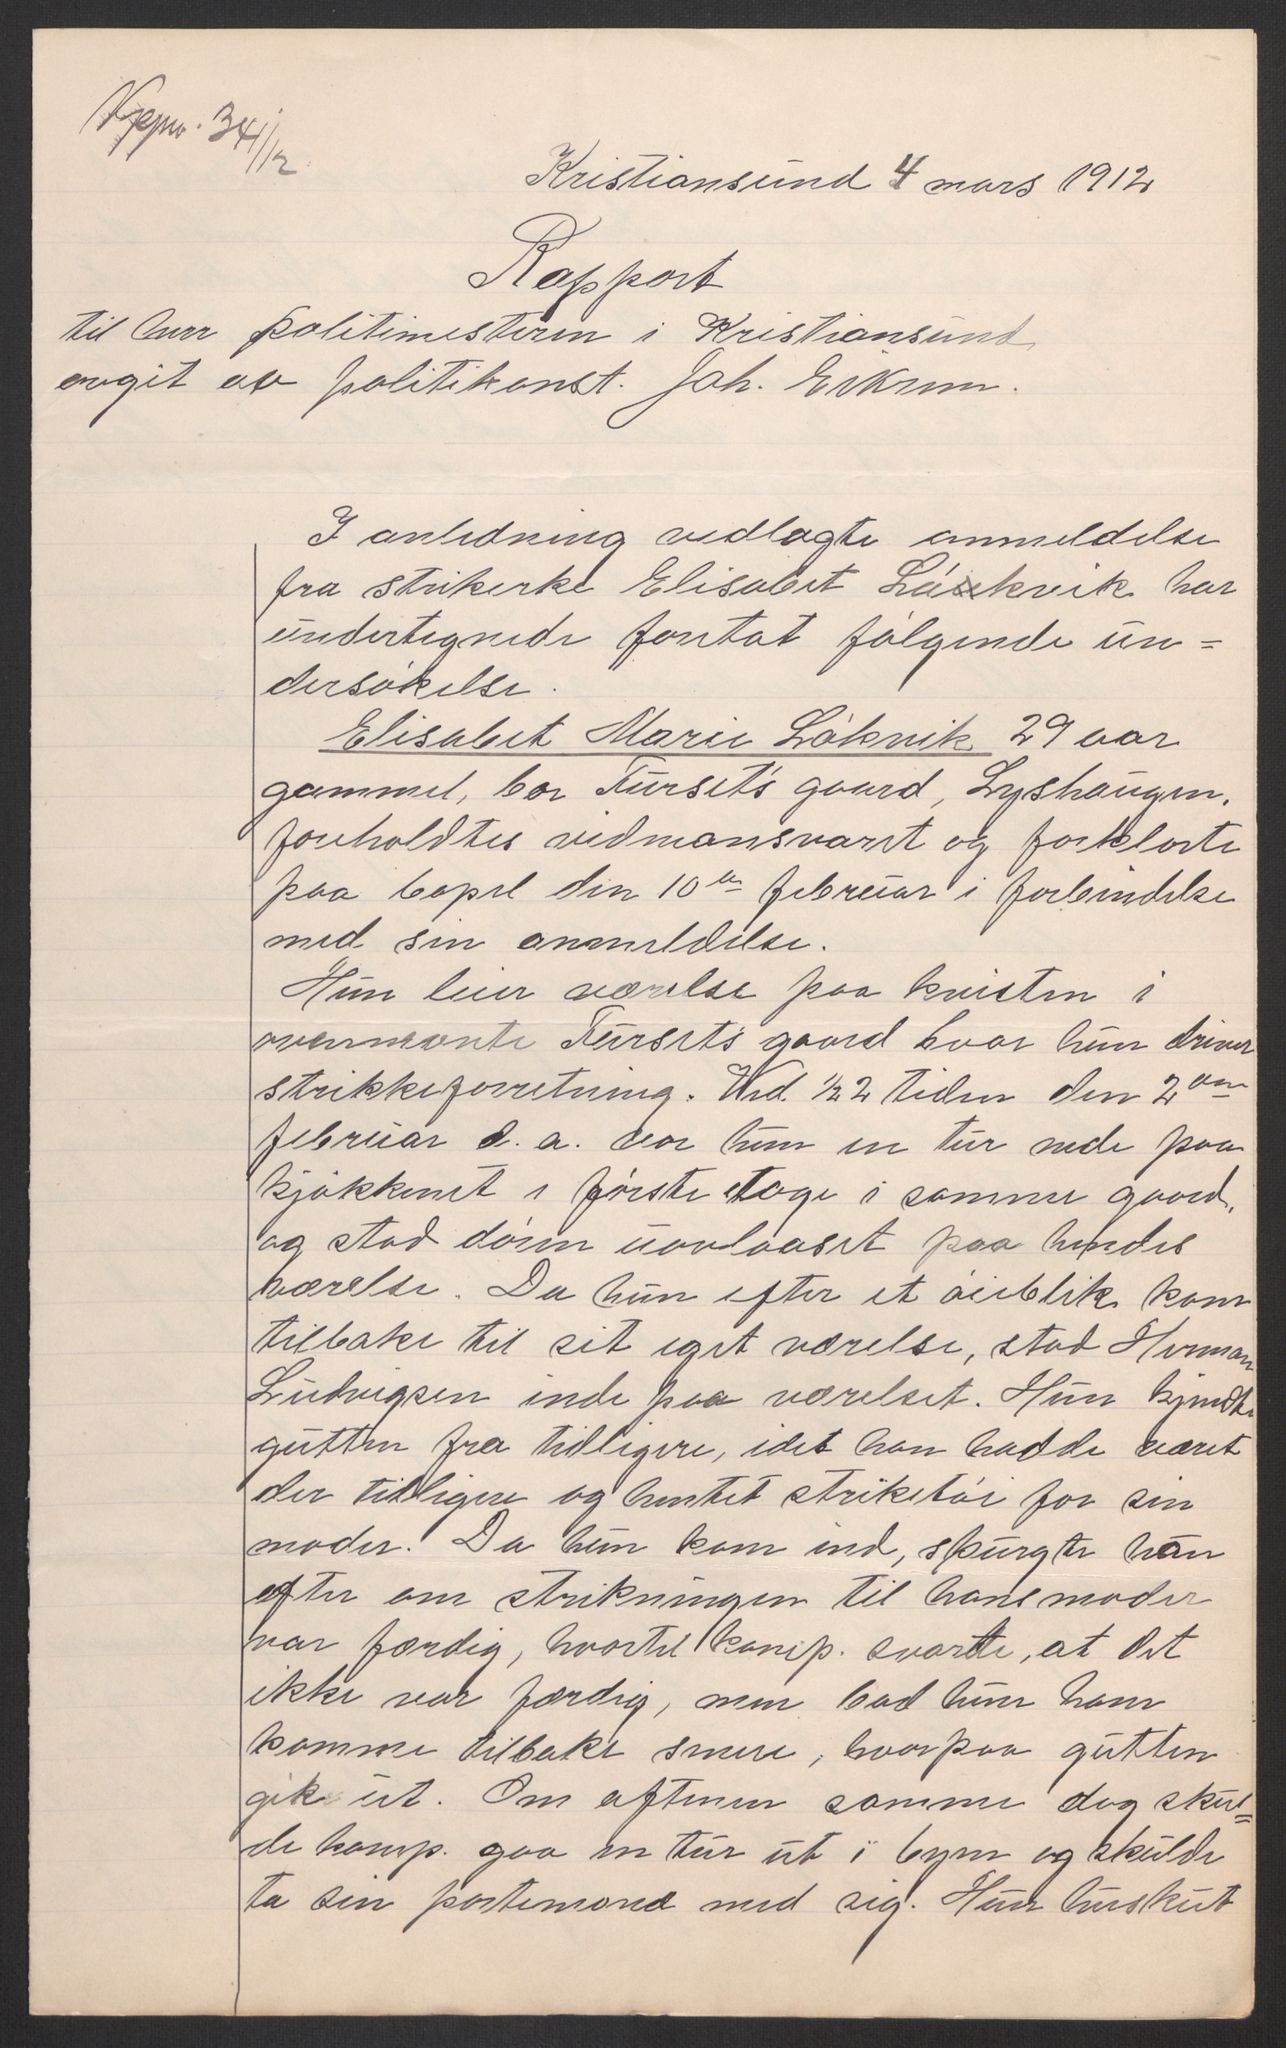 34/12
Kristiansund 4 mars 1912
Rapport
til herr politimesteren i Kristiansund
avgit av politikonst. Joh. Eikrem.
I anledning vedlagte anmeldelse
fra strikerske Elisabet Løkvik har
undertegnede foretat følgende un=
dersøkelse.
Elisabet Marie Løkvik 29 aar
gammel, bor Fürset's gaard, Lyshaugen,
foreholdtes vidneansvaret og forklarte
paa bopel den 10de februar i forbindelse
med sin anmeldelse.
Hun leier værelse paa kvisten i
ovennævnte Fürset's gaard hvor hun driver
strikkeforretning. Ved ½2 tiden den 2den
februar d. a. var hun en tur nede paa
kjøkkenet i første etage i samme gaard,
og stod døren uavlaaset paa hendes
værelse. Da hun efter et øieblik kom
tilbake til sit eget værelse, stod Herman
Ludvigsen inde paa værelset. Hun kjendte
gutten fra tidligere, idet han hadde været
der tidligere og hentet striketøi for sin
moder. Da hun kom ind, spurgte han
efter om strikningen til hans moder
var færdig, hvortil komp. svarte, at det
ikke var færdig, men bad hun ham
komme tilbake senere, hvorpaa gutten
gik ut. Om aftenen samme dag skul=
de komp. gaa en tur ut i byen og skulde
ta sin portemonæ med sig. Hun husket